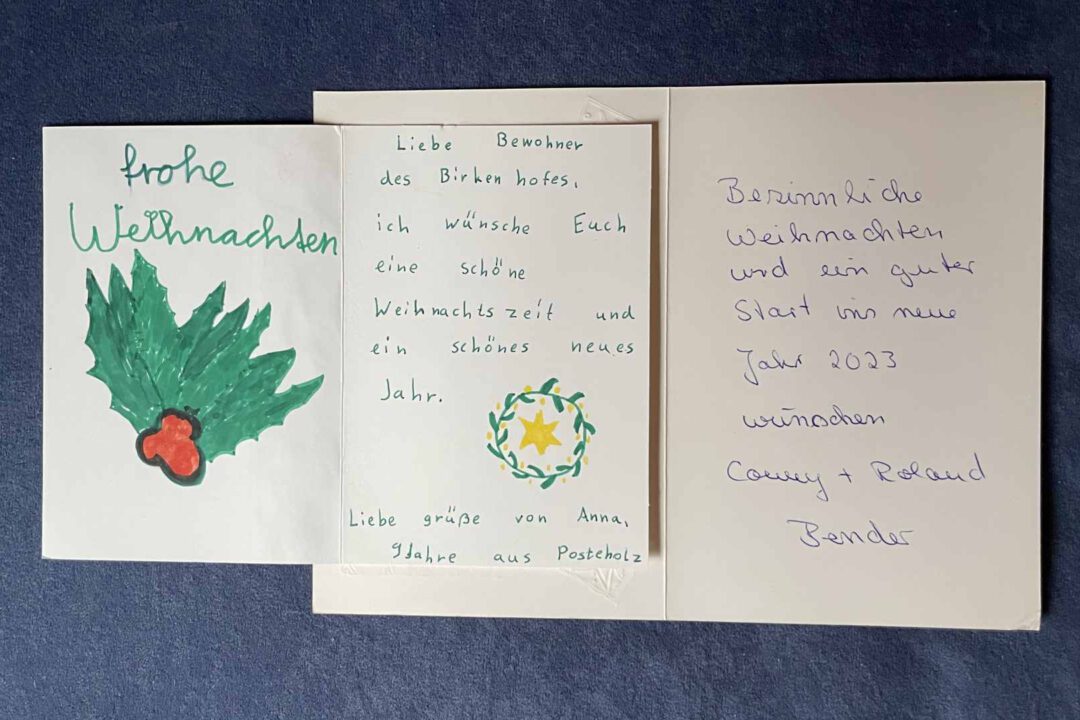 frohe
Weihnachten
Liebe Bewohner
des Birkenhofes,
ich wünsche Euch
eine schöne
Weihnachtszeit und
ein schönes neues
Jahr.
Liebe grüße von Anna,
9Jahre aus Posteholz
Besinnliche
Weihnachten
und ein guter
Start ins neue
Jahr 2023
wünschen
Conny + Roland
Bender